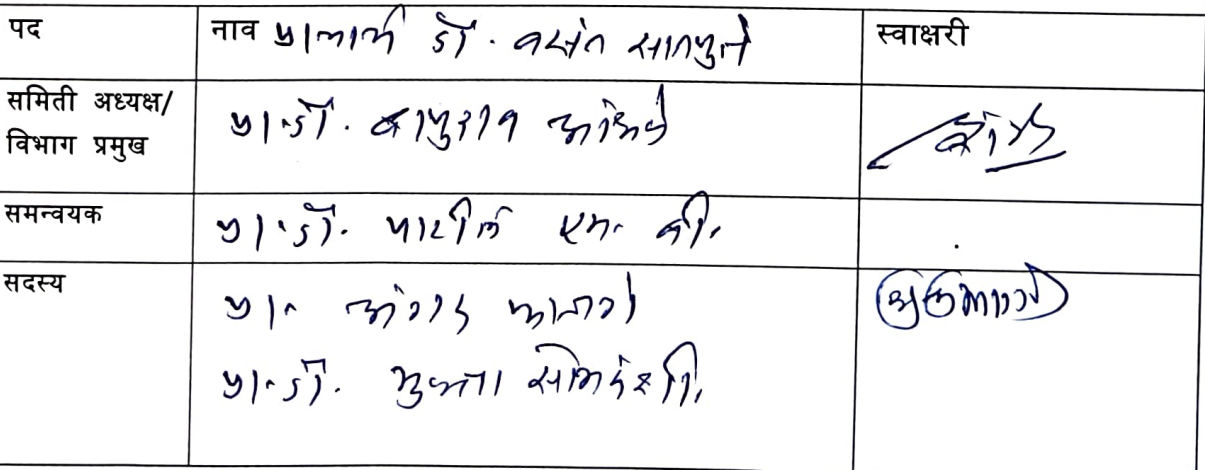 पद नाव प्राचार्य डॉ. वसंत सातपुते स्वाक्षरी
समिती अध्यक्ष/ विभाग प्रमुख प्रा.डॉ. बापुराव आंधळे
समन्वयक प्रा.डॉ. पाटील एम. बी.
सदस्य प्रा.
प्रा.डॉ. मुक्ता